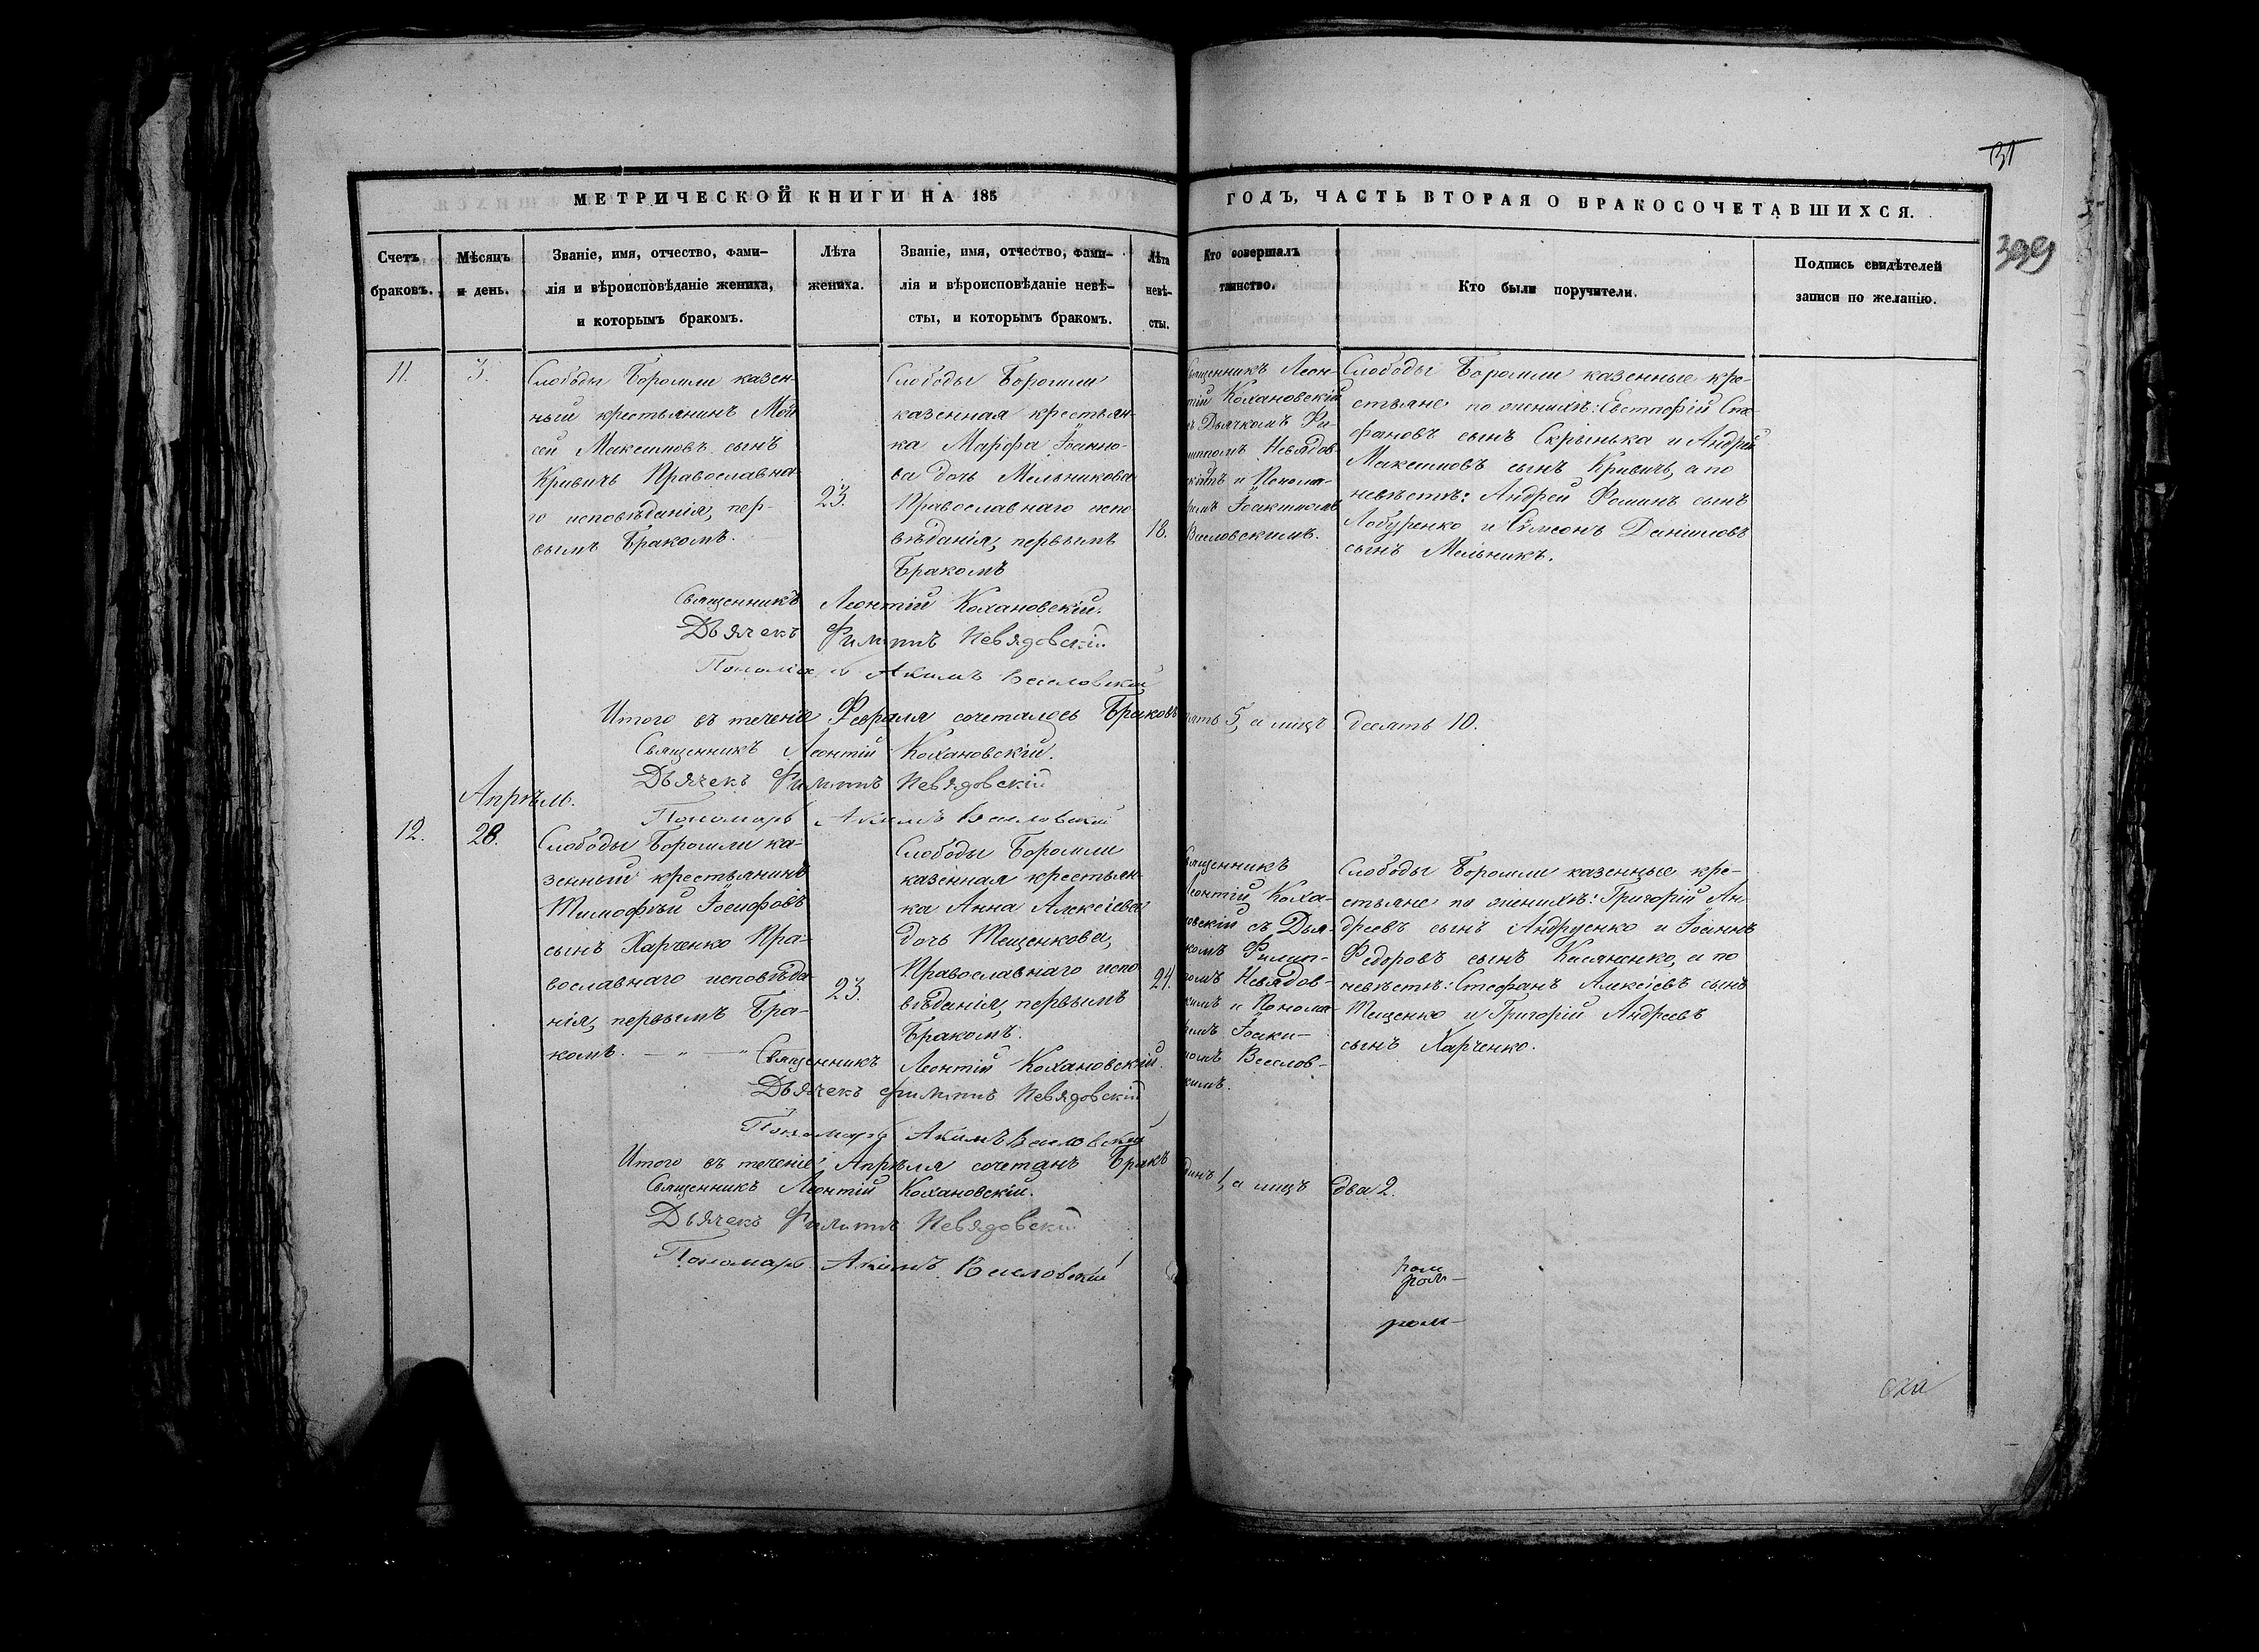 МЕТРИЧЕСКОЙ КНИГИ НА 185
ГОДЪ, ЧАСТЬ ВТОРАЯ О БРАКОСОЧЕТАВШИХСЯ.
31
399
Счетъ
браковъ.
Мѣсяцъ
и день.
Званіе, имя, отчество, фами-
лія и вѣроисповѣданіе жениха,
и которымъ бракомъ.
Лѣта
жениха.
Званіе, имя, отчество, фами-
лія и вѣроисповѣданіе невѣ-
сты, и которымъ бракомъ.
Лѣта
невѣ-
сты.
Кто совершалъ
таинство.
Кто были поручители.
Подпись свидѣтелей
записи по желанію.
11.
3.
Слободы Боромли казен-
ный крестьянинъ Мой
сей Максимовъ сынъ
Кривичъ Православна-
го исповѣданія, пер-
вымъ Бракомъ.
23.
Слободы Боромли
казенная крестьян-
ка Марфа Іоанно-
ва дочь Мельникова
Православнаго испо
вѣданія, первымъ
Бракомъ
18.
Священникъ Леон-
тій Кохановскій
съ Дьячкомъ Фи-
липпомъ Невядов-
скимъ и Понома-
ремъ Іоакимомъ
Веселовскимъ.
Слободы Боромли казенные кре-
стьяне по женихѣ: Евстафій Сте-
фановъ сынъ Скрынька и Андрей
Максимовъ сынъ Кривичъ, а по
невѣстѣ: Андрей Фоминъ сынъ
Лобуренко и Сѵмеонъ Даніиловъ
сынъ Мельникъ.
Священникъ Леонтій Кохановскій.
Дьячекъ Филиппъ Невядовскій
Пономарь Акимъ Веселовскій
Итого въ теченіе Февраля сочеталось Браковъ пять 5, а лицъ десять 10.
Священникъ Леонтій Кохановскій.
Дьячекъ Филиппъ Невядовскій
Пономарь Акимъ Веселовскій
Апрѣль.
12.
28.
Слободы Боромли ка-
зенный крестьянинъ
Тимофѣй Іосифовъ
сынъ Харченко Пра-
вославнаго исповѣда-
нія, первымъ Бра-
комъ.
23.
Слободы Боромли
казенная крестьян-
ка Анна Алексіева
дочь Тещенкова,
Православнаго испо
вѣданія, первымъ
Бракомъ.
21.
Священникъ
Леонтій Коха-
новскій съ Дья-
комъ Филип-
помъ Невядов-
скимъ и Понома-
ремъ Іоаки-
момъ Веселов-
скимъ.
Слободы Боромли казенные кре-
стьяне по женихѣ: Григорій Ан-
дреевъ сынъ Андрусенко и Іоаннъ
Федоровъ сынъ Касяненко, а по
невѣстѣ: Стефанъ Алексіевъ сынъ
Тещенко и Григорій Андреевъ
сынъ Харченко.
Священникъ Леонтій Кохановскій.
Дьячекъ Филиппъ Невядовскій
Пономарь Акимъ Веселовскій
Итого въ теченіе Апрѣля сочетанъ Бракъ одинъ 1, а лицъ два 2.
Священникъ Леонтій Кохановскій.
Дьячекъ Филиппъ Невядовскій
Пономарь Акимъ Веселовскій